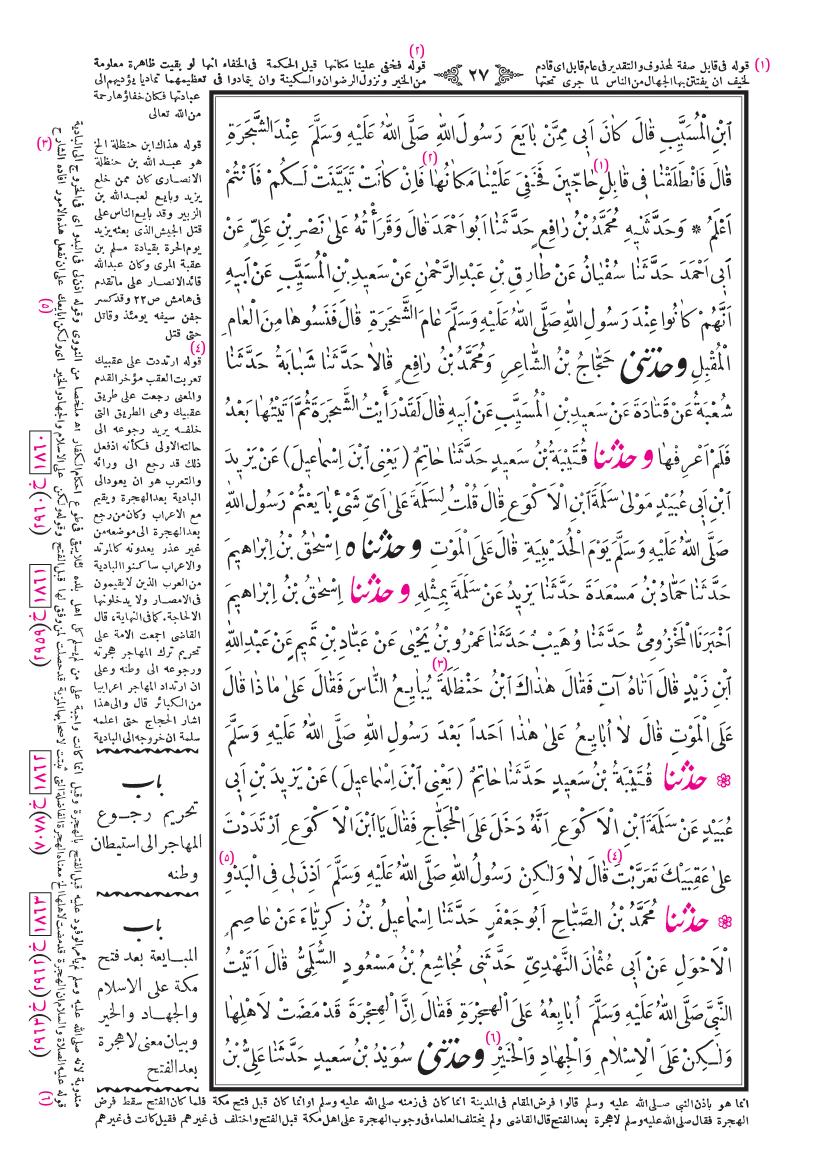 (١) قوله فى قابل صفة لمحذوف والتقدير فى عام قابل اى قادم
٢٧
(٢) قوله فخفى علينا مكانها قيل الحكمة فى الخفاء انها لو بقيت ظاهرة معلومة
لخيف ان يفتتن بها الجهال من الناس لما جرى تحتها
من الخير ونزول الرضوان والسكينة وان يتمادوا فى تعظيمهما تماديا يؤديهم الى
عبادتها فكان خفاؤها رحمة
من الله تعالى
ابْنِ الْمُسَيَّبِ قَالَ كَانَ اَبِى مِمَّنْ بَايَعَ رَسُولَ اللهِ صَلَّى اللهُ عَلَيْهِ وَسَلَّمَ عِنْدَ الشَّجَرَةِ
قَالَ فَانْطَلَقْنَا فِى قَابِلٍ (١) حَاجِّينَ فَخَفِىَ عَلَيْنَا مَكَانُهَا (٢) فَاِنْ كَانَتْ تَبَيَّنَتْ لَكُمْ فَاَنْتُمْ
اَعْلَمُ * وَحَدَّثَنِيهِ مُحَمَّدُ بْنُ رَافِعٍ حَدَّثَنَا اَبُو اَحْمَدَ قَالَ وَقَرَأْتُهُ عَلَى نَصْرِ بْنِ عَلِىٍّ عَنْ
اَبِى اَحْمَدَ حَدَّثَنَا سُفْيَانُ عَنْ طَارِقِ بْنِ عَبْدِ الرَّحْمٰنِ عَنْ سَعِيدِ بْنِ الْمُسَيَّبِ عَنْ اَبِيهِ
اَنَّهُمْ كَانُوا عِنْدَ رَسُولِ اللهِ صَلَّى اللهُ عَلَيْهِ وَسَلَّمَ عَامَ الشَّجَرَةِ قَالَ فَنَسُوهَا مِنَ الْعَامِ
الْمُقْبِلِ وحدثنى حَجَّاجُ بْنُ الشَّاعِرِ وَمُحَمَّدُ بْنُ رَافِعٍ قَالَا حَدَّثَنَا شَبَابَةُ حَدَّثَنَا
شُعْبَةُ عَنْ قَتَادَةَ عَنْ سَعِيدِ بْنِ الْمُسَيَّبِ عَنْ اَبِيهِ قَالَ لَقَدْ رَأَيْتُ الشَّجَرَةَ ثُمَّ اَتَيْتُهَا بَعْدُ
فَلَمْ اَعْرِفْهَا وحدثنا قُتَيْبَةُ بْنُ سَعِيدٍ حَدَّثَنَا حَاتِمٌ (يَعْنِى ابْنَ اِسْمَاعِيلَ) عَنْ يَزِيدَ
ابْنِ اَبِى عُبَيْدٍ مَوْلَى سَلَمَةَ ابْنِ الْاَكْوَعِ قَالَ قُلْتُ لِسَلَمَةَ عَلَى اَىِّ شَىْءٍ بَايَعْتُمْ رَسُولَ اللهِ
صَلَّى اللهُ عَلَيْهِ وَسَلَّمَ يَوْمَ الْحُدَيْبِيَةِ قَالَ عَلَى الْمَوْتِ وحدثناه اِسْحٰقُ بْنُ اِبْرَاهِيمَ
حَدَّثَنَا حَمَّادُ بْنُ مَسْعَدَةَ حَدَّثَنَا يَزِيدُ عَنْ سَلَمَةَ بِمِثْلِهِ وحدثنا اِسْحٰقُ بْنُ اِبْرَاهِيمَ
اَخْبَرَنَا الْمَخْزُومِىُّ حَدَّثَنَا وُهَيْبٌ حَدَّثَنَا عَمْرُو بْنُ يَحْيَى عَنْ عَبَّادِ بْنِ تَمِيمٍ عَنْ عَبْدِ اللهِ
ابْنِ زَيْدٍ قَالَ اَتَاهُ آتٍ فَقَالَ هٰذَاكَ ابْنُ حَنْظَلَةَ (٣) يُبَايِعُ النَّاسَ فَقَالَ عَلَى مَاذَا قَالَ
عَلَى الْمَوْتِ قَالَ لَا اُبَايِعُ عَلَى هٰذَا اَحَداً بَعْدَ رَسُولِ اللهِ صَلَّى اللهُ عَلَيْهِ وَسَلَّمَ
❁ حدثنا قُتَيْبَةُ بْنُ سَعِيدٍ حَدَّثَنَا حَاتِمٌ (يَعْنِى ابْنَ اِسْمَاعِيلَ) عَنْ يَزِيدَ بْنِ اَبِى
عُبَيْدٍ عَنْ سَلَمَةَ ابْنِ الْاَكْوَعِ اَنَّهُ دَخَلَ عَلَى الْحَجَّاجِ فَقَالَ يَا ابْنَ الْاَكْوَعِ ارْتَدَدْتَ
عَلَى عَقِبَيْكَ (٤) تَعَرَّبْتَ قَالَ لَا وَلٰكِنْ رَسُولُ اللهِ صَلَّى اللهُ عَلَيْهِ وَسَلَّمَ اَذِنَ لِى فِى الْبَدْوِ (٥)
❁ حدثنا مُحَمَّدُ بْنُ الصَّبَّاحِ اَبُو جَعْفَرٍ حَدَّثَنَا اِسْمَاعِيلُ بْنُ زَكَرِيَّاءَ عَنْ عَاصِمٍ
الْاَحْوَلِ عَنْ اَبِى عُثْمَانَ النَّهْدِىِّ حَدَّثَنِى مُجَاشِعُ بْنُ مَسْعُودٍ السُّلَمِىُّ قَالَ اَتَيْتُ
النَّبِىَّ صَلَّى اللهُ عَلَيْهِ وَسَلَّمَ اُبَايِعُهُ عَلَى الْهِجْرَةِ فَقَالَ اِنَّ الْهِجْرَةَ قَدْ مَضَتْ لِاَهْلِهَا
وَلٰكِنْ عَلَى الْاِسْلَامِ وَالْجِهَادِ وَالْخَيْرِ (٦) وحدثنى سُوَيْدُ بْنُ سَعِيدٍ حَدَّثَنَا عَلِىُّ بْنُ
(٣) قوله هذاك ابن حنظلة الخ
هو عبد الله بن حنظلة
الانصارى كان ممن خلع
يزيد وبايع لعبدالله بن
الزبير وقد بايع الناس على
قتل الجيش الذى بعثه يزيد
يوم الحرة بقيادة مسلم بن
عقبة المرى وكان عبدالله
قائد الانصار على ماتقدم
فى هامش ص ٢٢ وقد كسر
جفن سيفه يومئذ وقاتل
حتى قتل
(٤)
قوله ارتددت على عقبيك
تعربت العقب مؤخر القدم
والمعنى رجعت على طريق
عقبيك وهى الطريق التى
خلفه يريد رجوعه الى
حالته الاولى فكأنه اذفعل
ذلك قد رجع الى ورائه
والتعرب هو ان يعود الى
البادية بعد الهجرة ويقيم
مع الاعراب وكان من رجع
بعد الهجرة الى موضعه من
غير عذر يعدونه كالمرتد
والاعراب ساكنوا البادية
من العرب الذين لايقيمون
فى الامصار ولا يدخلونها
الا لحاجة كما فى النهاية، قال
القاضى اجمعت الامة على
تحريم ترك المهاجر هجرته
ورجوعه الى وطنه وعلى
ان ارتداد المهاجر اعرابيا
من الكبائر قال والى هذا
اشار الحجاج حتى اعلمه
سلمة ان خروجه الى البادية
باب
تحريم رجوع
المهاجر الى استيطان
وطنه
باب
المبايعة بعد فتح
مكة على الاسلام
والجهاد والخير
وبيان معنى لا هجرة
بعد الفتح
(٥)
(٦)
١٨٦٠
خ (٢٩٦٠)
١٨٦١
خ (٢٩٥٩)
١٨٦٢
خ (٧٠٨٧)
١٨٦٣
خ (٢٩٦٢، ٢٩٦٣)
انما هو باذن النبى صلى الله عليه وسلم قالوا فرض المقام فى المدينة انما كان فى زمنه صلى الله عليه وسلم او انما كان قبل فتح مكة فلما كان الفتح سقط فرض
الهجرة فقال صلى الله عليه وسلم لاهجرة بعد الفتح قال القاضى ولم يختلف العلماء فى وجوب الهجرة على اهل مكة قبل الفتح واختلف فى غيرهم فقيل كانت فى غيرهم